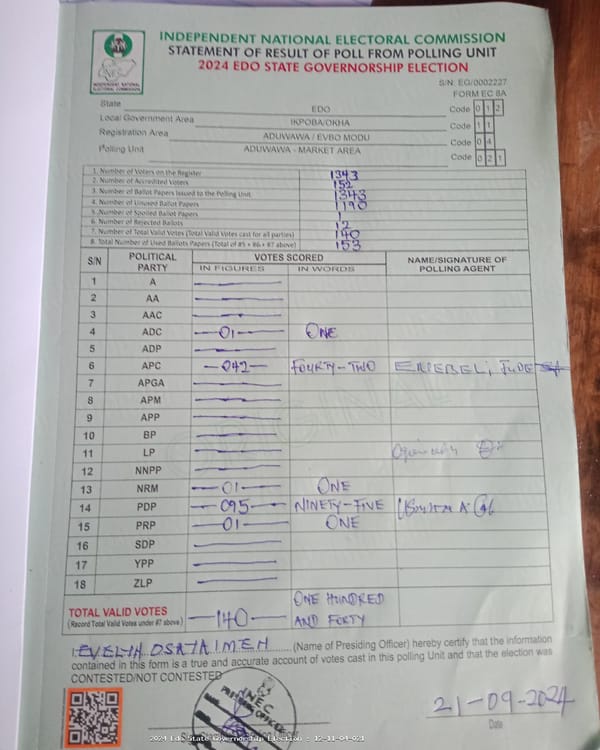 INDEPENDENT NATIONAL ELECTORAL COMMISSION
STATEMENT OF RESULT OF POLL FROM POLLING UNIT
2024 EDO STATE GOVERNORSHIP ELECTION
S/N: EG/0002227
FORM EC 8A
INDEPENDENT NATIONAL
ELECTORAL COMMISSION
State EDO Code 0 1 2
Local Government Area IKPOBA/OKHA Code 1 1
Registration Area ADUWAWA / EVBO MODU Code 0 4
Polling Unit ADUWAWA - MARKET AREA Code 0 2 1
1. Number of Voters on the Register 1343
2. Number of Accredited Voters 152
3. Number of Ballot Papers Issued to the Polling Unit 1343
4. Number of Unused Ballot Papers 1190
5. Number of Spoiled Ballot Papers 1
6. Number of Rejected Ballots 12
7. Number of Total Valid Votes (Total Valid Votes cast for all parties) 140
8. Total Number of Used Ballots Papers (Total of #5 + #6 + #7 above) 153
S/N POLITICAL PARTY VOTES SCORED NAME/SIGNATURE OF POLLING AGENT
IN FIGURES IN WORDS
1 A
2 AA
3 AAC
4 ADC 01 ONE
5 ADP
6 APC 042 FOURTY-TWO
7 APGA
8 APM
9 APP
10 BP
11 LP
12 NNPP
13 NRM 01 ONE
14 PDP 095 NINETY-FIVE
15 PRP 01 ONE
16 SDP
17 YPP
18 ZLP
TOTAL VALID VOTES 140 ONE HUNDRED
(Record Total Valid Votes under #7 above) AND FORTY
I, EVELYN OSAZAIMEN (Name of Presiding Officer) hereby certify that the information
contained in this form is a true and accurate account of votes cast in this polling Unit and that the election was
CONTESTED/NOT CONTESTED
INEC
PRESIDING OFFICER
21-09-2024
Date
2024 Edo State Governorship Election : 12-11-04-021